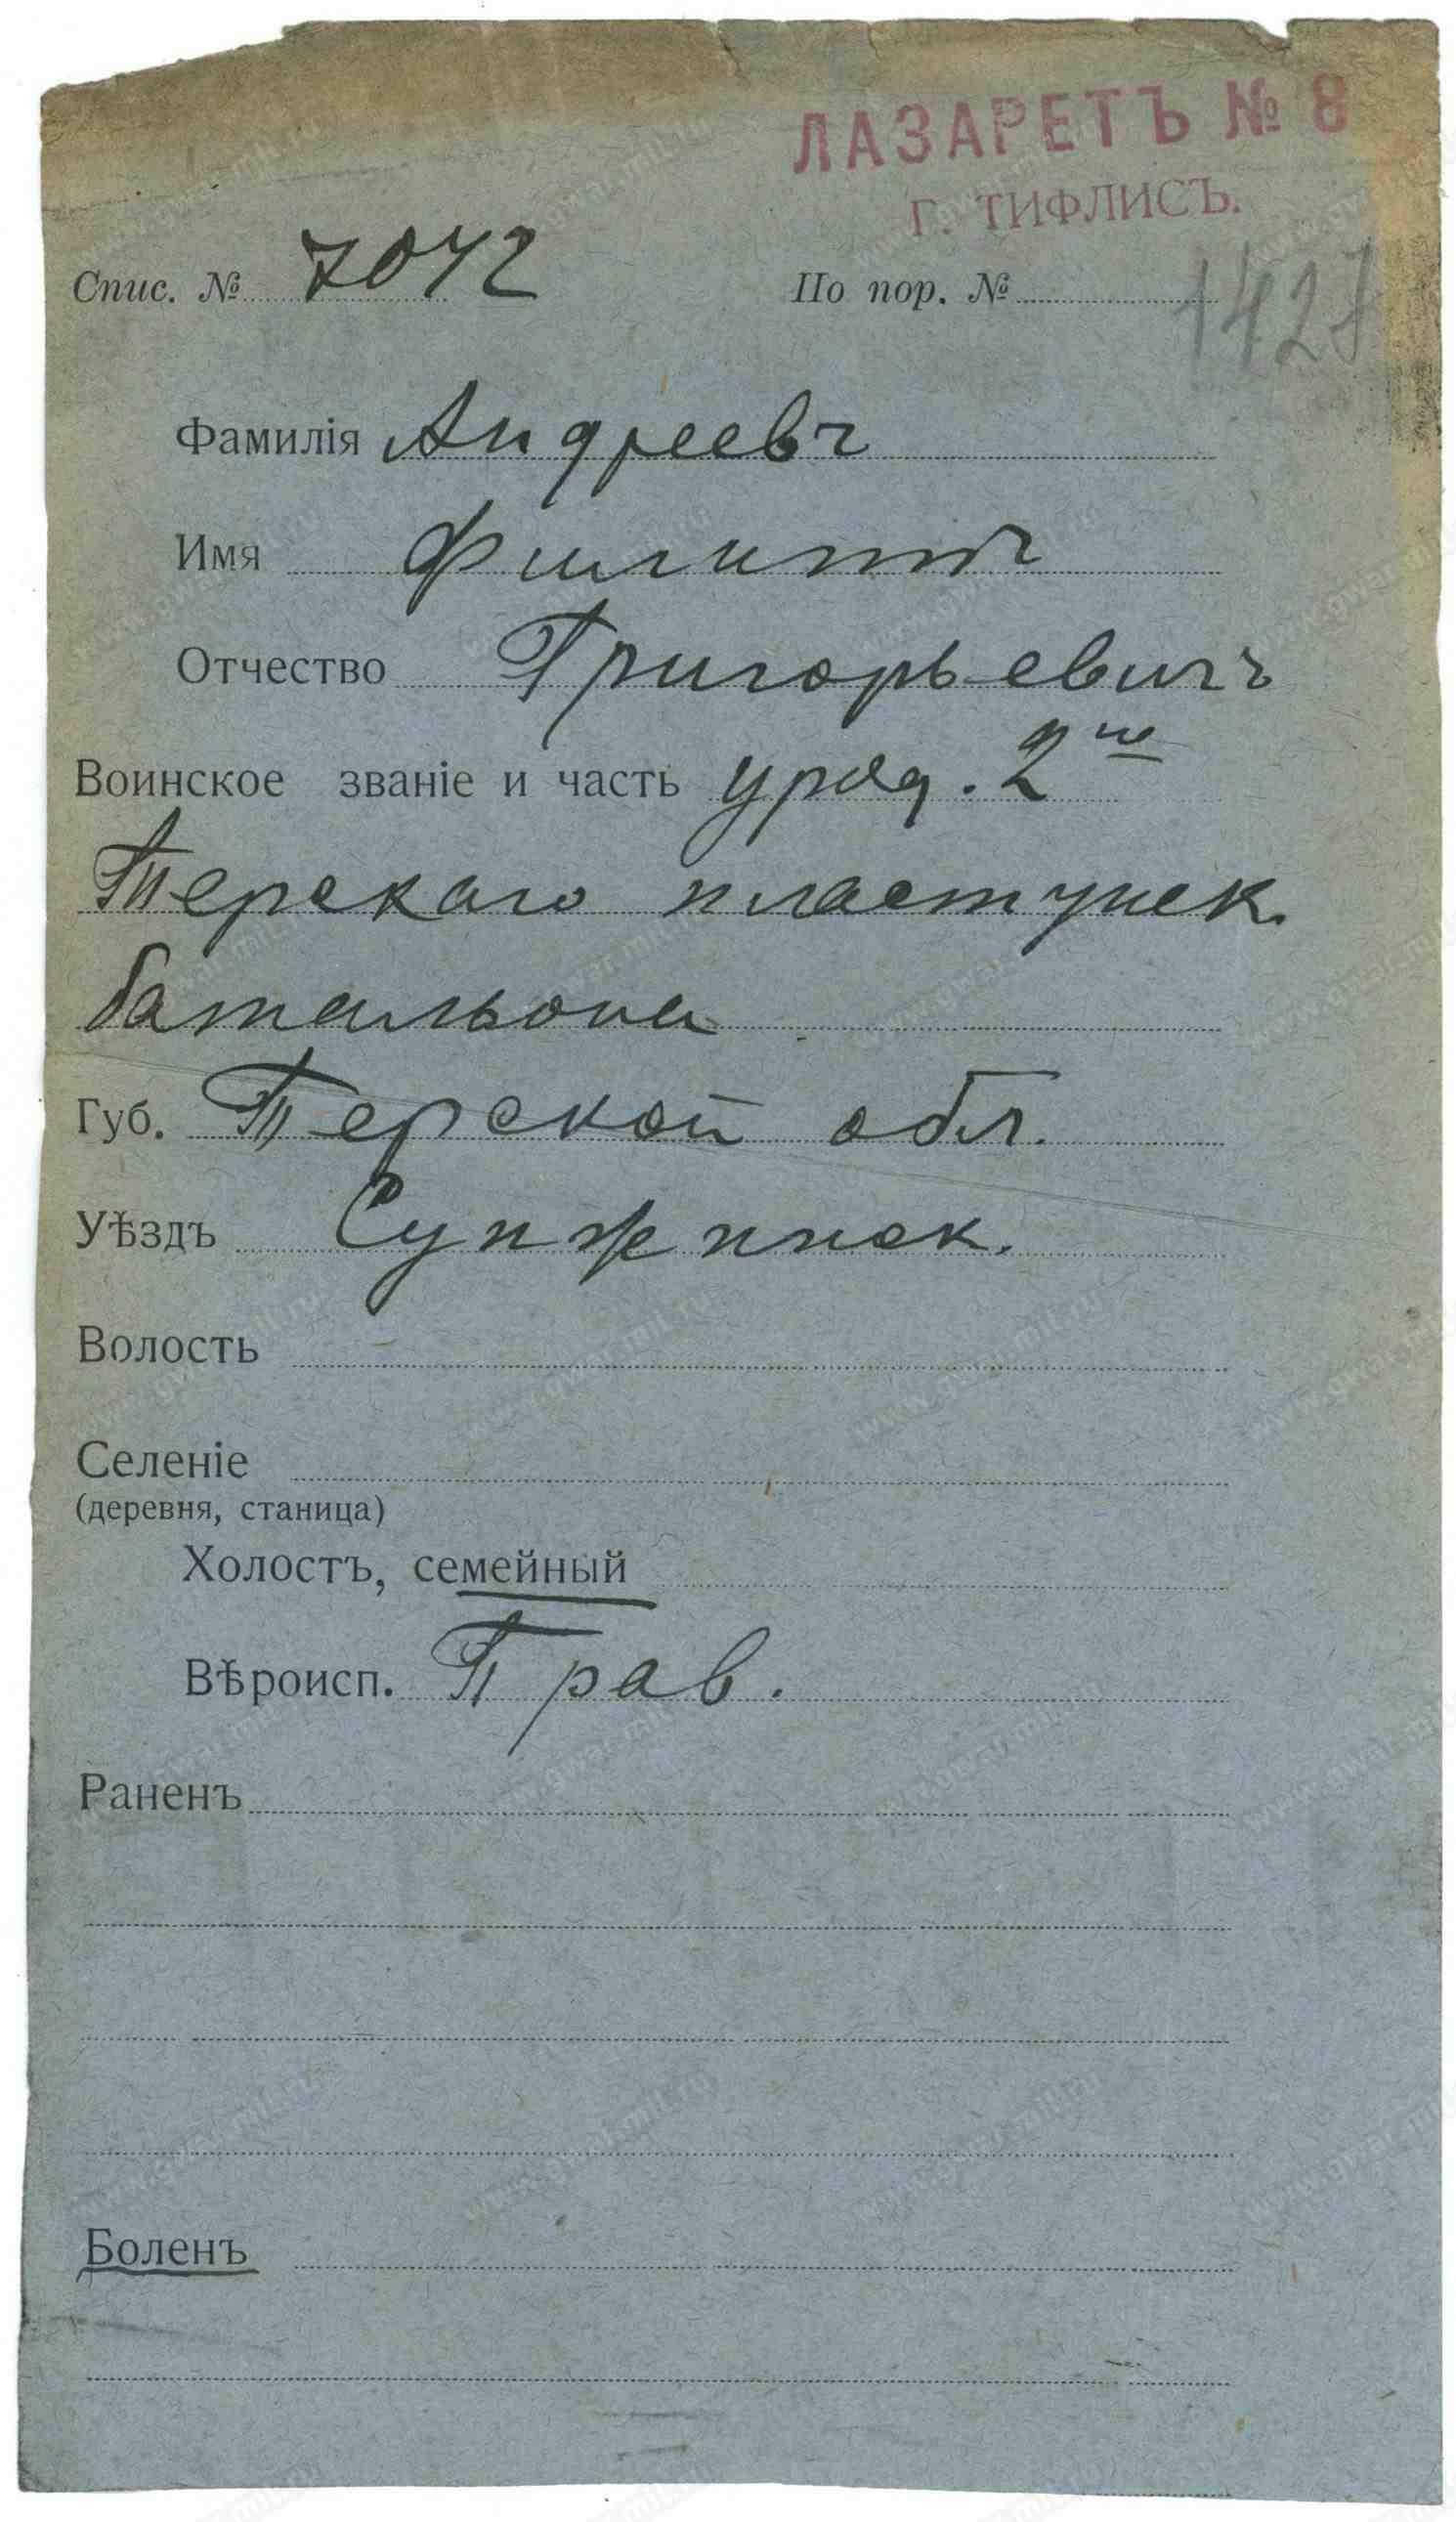 ЛАЗАРЕТЪ № 8
Г. ТИФЛИСЪ.
Спис. № 7042 По пор. № 1427
Фамилія Андреевъ
Имя Филиппъ
Отчество Григорьевичъ
Воинское званіе и часть уряд. 2го
Терскаго пластунск.
батальона
Губ. Терской обл.
Уѣздъ Сунженск.
Волость
Селеніе
(деревня, станица)
Холостъ, семейный
Вѣроисп. Прав.
Раненъ
Боленъ